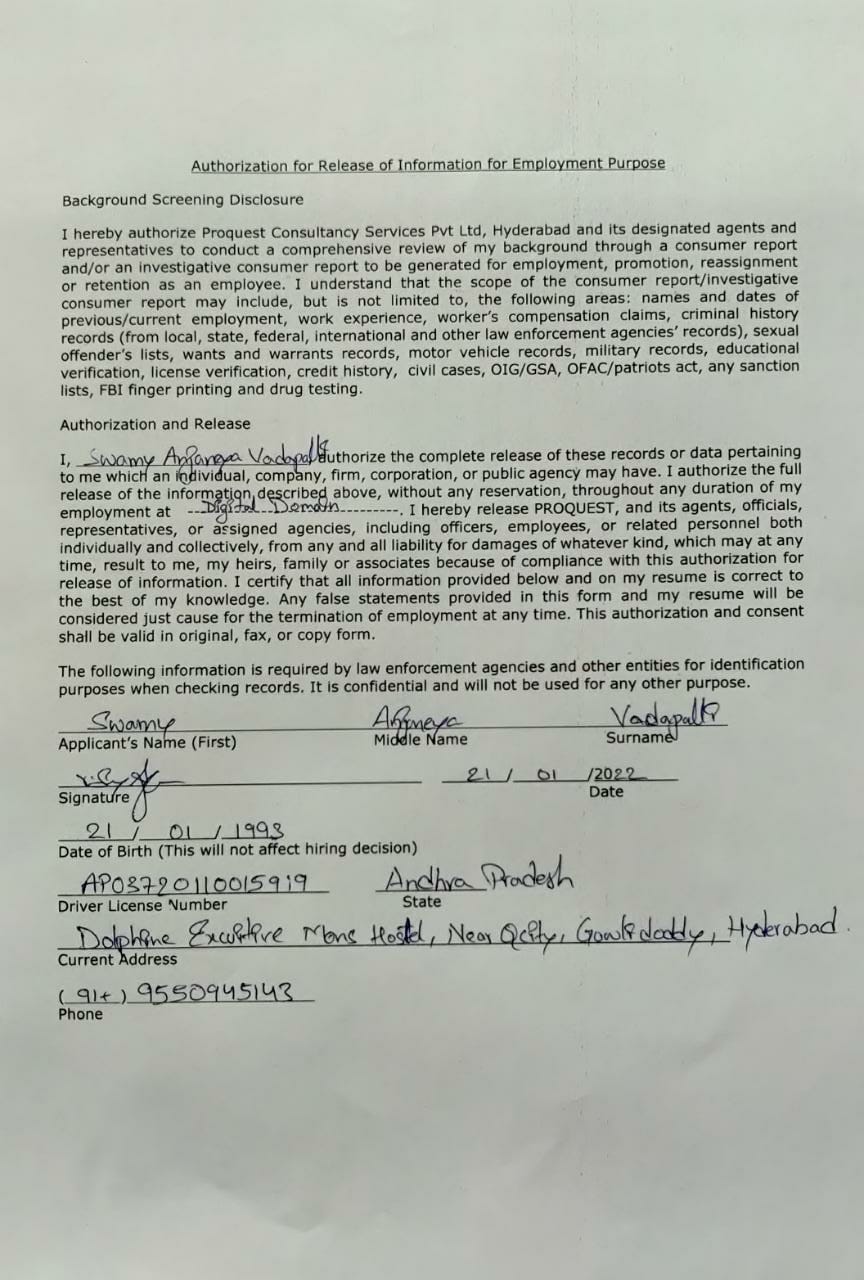 Authorization for Release of Information for Employment Purpose
Background Screening Disclosure
I hereby authorize Proquest Consultancy Services Pvt Ltd, Hyderabad and its designated agents and
representatives to conduct a comprehensive review of my background through a consumer report
and/or an investigative consumer report to be generated for employment, promotion, reassignment
or retention as an employee. I understand that the scope of the consumer report/investigative
consumer report may include, but is not limited to, the following areas: names and dates of
previous/current employment, work experience, worker's compensation claims, criminal history
records (from local, state, federal, international and other law enforcement agencies' records), sexual
offender's lists, wants and warrants records, motor vehicle records, military records, educational
verification, license verification, credit history, civil cases, OIG/GSA, OFAC/patriots act, any sanction
lists, FBI finger printing and drug testing.
Authorization and Release
I, Swamy Vadapalli authorize the complete release of these records or data pertaining
to me which an individual, company, firm, corporation, or public agency may have. I authorize the full
release of the information described above, without any reservation, throughout any duration of my
employment at Digital Domain. I hereby release PROQUEST, and its agents, officials,
representatives, or assigned agencies, including officers, employees, or related personnel both
individually and collectively, from any and all liability for damages of whatever kind, which may at any
time, result to me, my heirs, family or associates because of compliance with this authorization for
release of information. I certify that all information provided below and on my resume is correct to
the best of my knowledge. Any false statements provided in this form and my resume will be
considered just cause for the termination of employment at any time. This authorization and consent
shall be valid in original, fax, or copy form.
The following information is required by law enforcement agencies and other entities for identification
purposes when checking records. It is confidential and will not be used for any other purpose.
Swamy Anjneya Vadapalli
Applicant's Name (First) Middle Name Surname
21 / 01 /2022
Signature Date
21 / 01 / 1993
Date of Birth (This will not affect hiring decision)
AP03720110015919 Andhra Pradesh
Driver License Number State
Dolphine Mens Hostel, Near Qcity, Gowlidoddy, Hyderabad.
Current Address
(91+) 9550945143
Phone